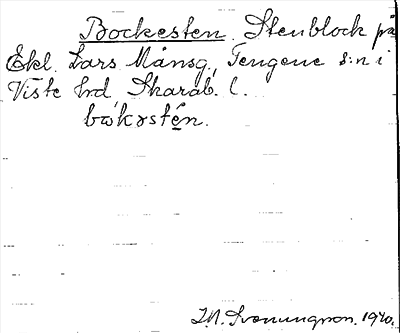 Bockesten. Stenblock på
Ekl. Lars Månsg, Tengene s:n i
Viste hrd Skarab. l.
bωkɤstén.
J. N. Svanungson. 1940.